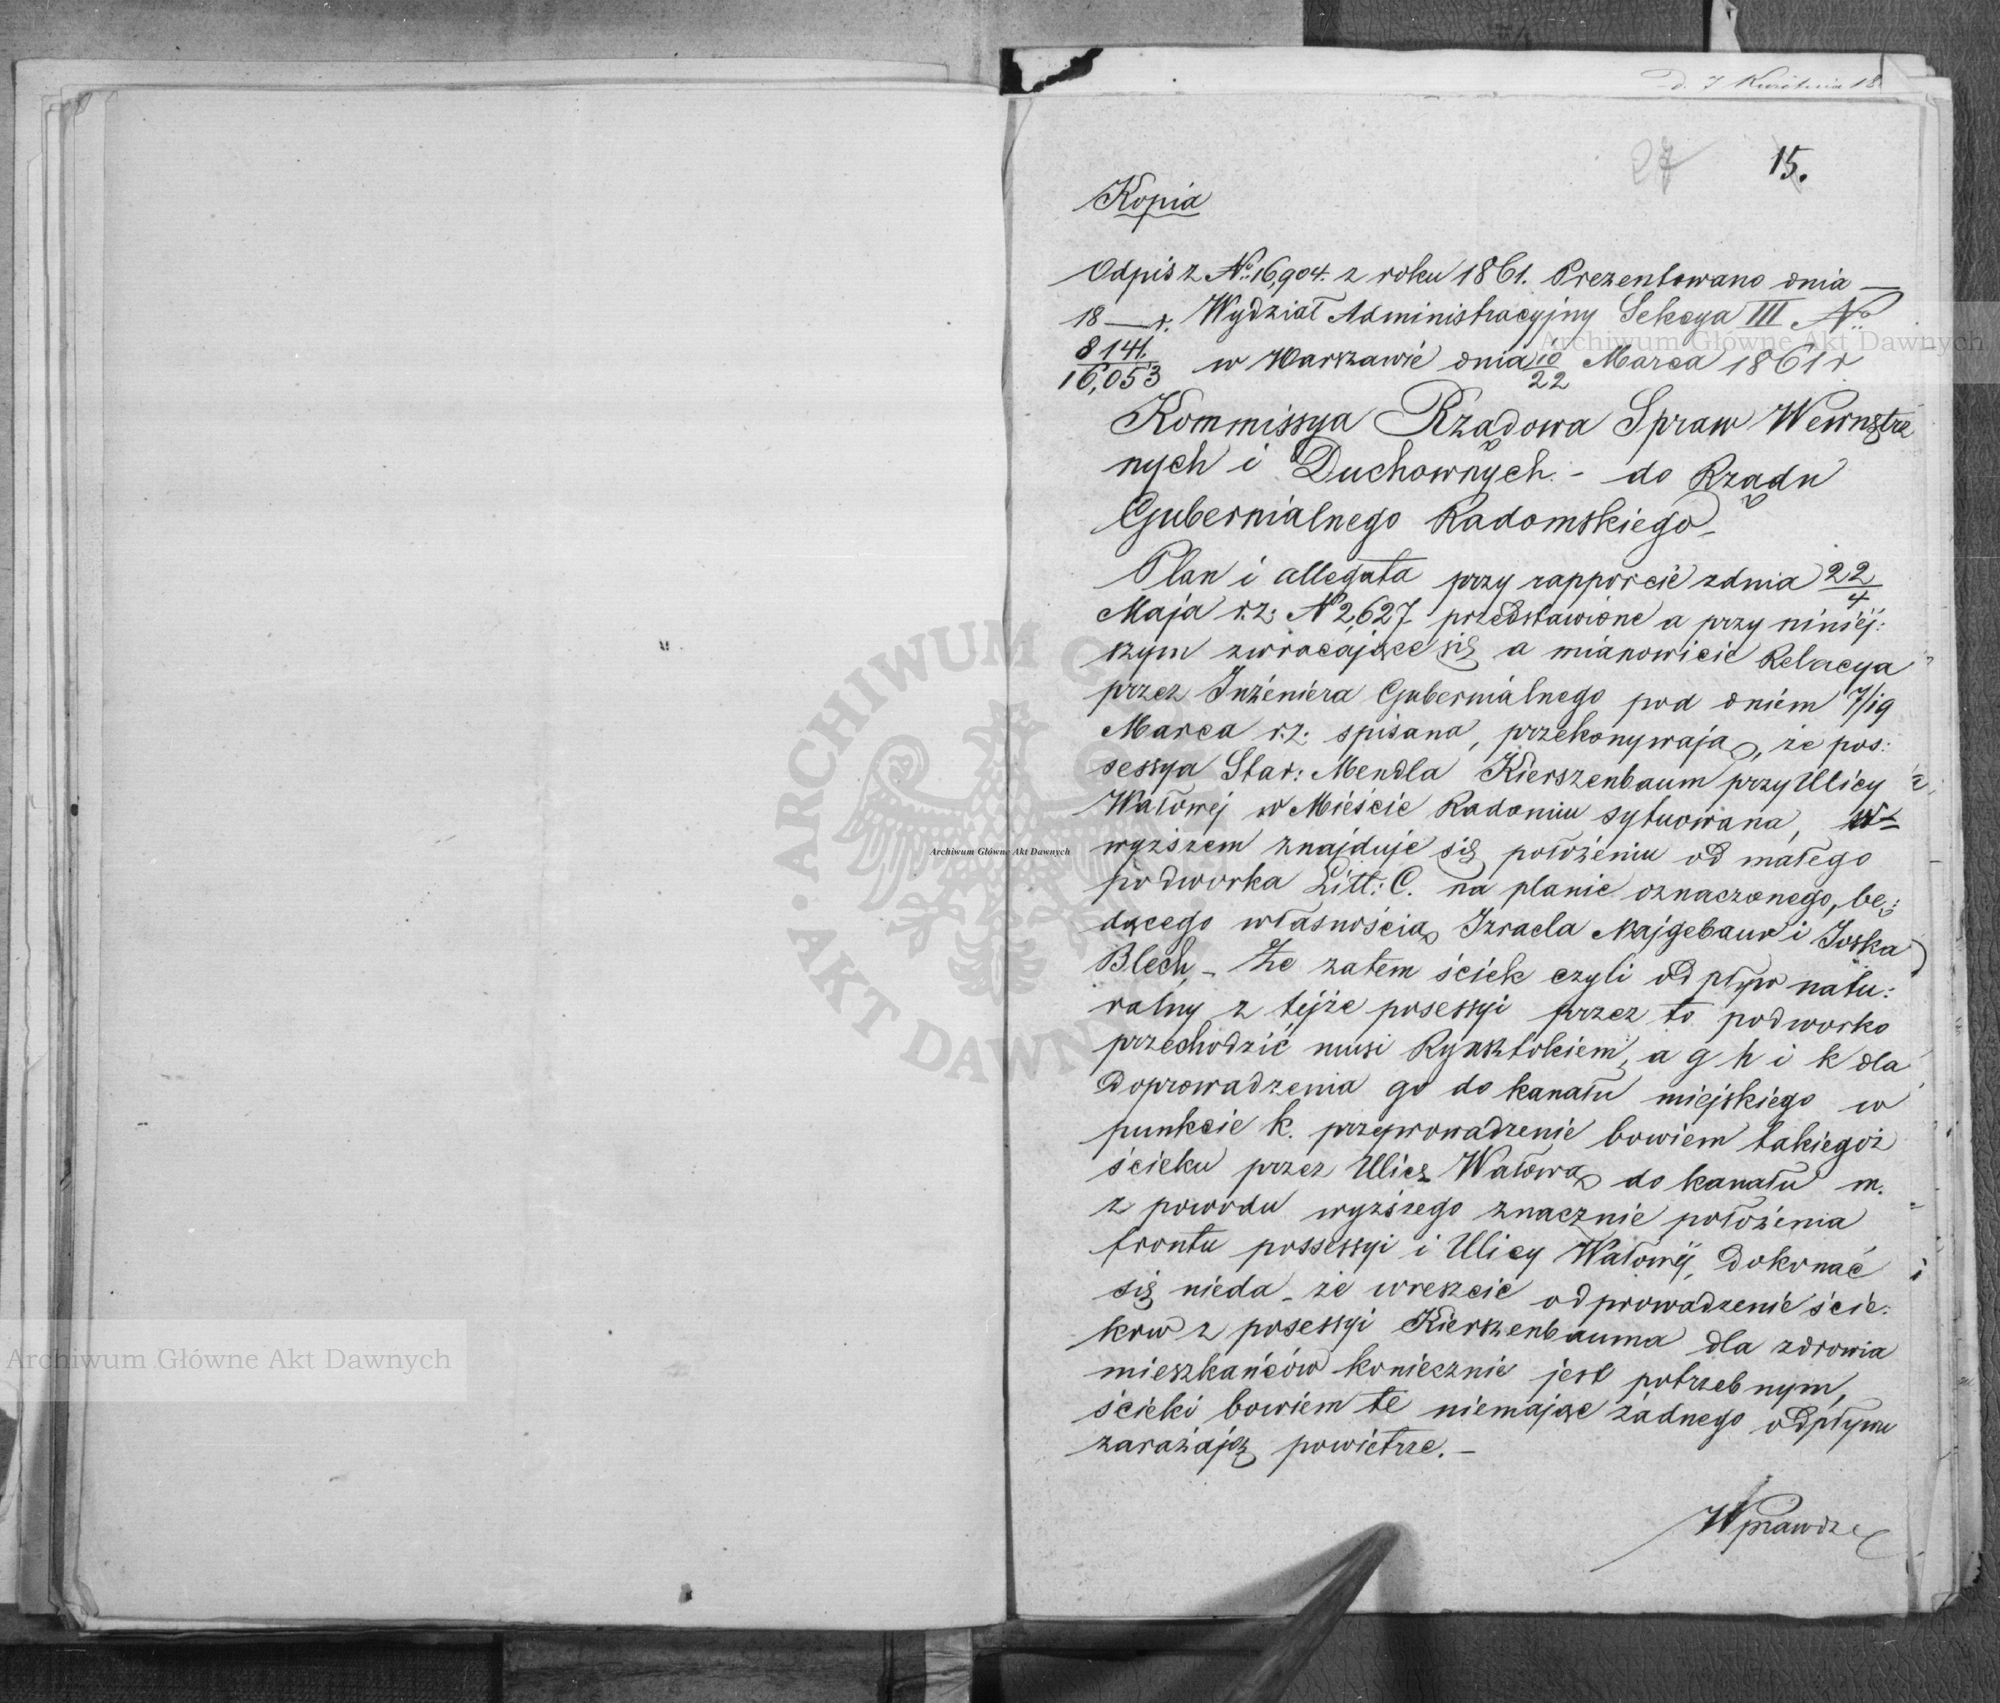 D. 7 Kwietnia 18
27
15.
Kopia
Odpis z No. 16,904. z roku 1861. Prezentowano dnia —
18 — r. Wydział Administracyjny Sekcya III No.
8141./16,053 w Warszawie dnia 10/22 Marca 1861 r
Kommissya Rządowa Spraw Wewnętrz
nych i Duchownych. - do Rządu
Gubernialnego Radomskiego. -
Plan i allegata przy rapporcie z dnia 22/4
Maja r.z. No 2,627 przedstawione a przy niniéj:
szym zwracające się a mianowicie Relacya
przez Inżeniera Gubernialnego pod dniem 7/19
Marca r.z. spisana, przekonywają, że pos:
sessya Star: Mendla Kierszenbaum przy Ulicy
Wałowej w Mieście Radomiu sytuowana, w
wyższem znajduje się położeniu od małego
podworka Litt: C. na planie oznaczonego, bę:
dącego własnością Izraela Majgebaur i Joska
Blech, - Że zatem ściek czyli odpływ natu:
ralny z tejże posessyi przez to podworko
przechodzić musi Rynsztokiem, a g h i k dla
doprowadzenia go do kanału miejskiego w
punkcie k. przeprowadzenie bowiem takiegoż
ścieku przez Ulicę Wałową do kanału m.
z powodu wyższego znacznie położenia
frontu possessyi i Ulicy Wałowéj, dokonać
się nieda - że wreszcie odprowadzenie ście:
kow z posessyi Kierszenbauma dla zdrowia
mieszkańców koniecznie jest potrzebnym,
ścieki bowiem te niemając żadnego odpływu
zarażają powietrze. -
Wprawdzie
Archiwum Główne Akt Dawnych
Archiwum Główne Akt Dawnych
Archiwum Główne Akt Dawnych